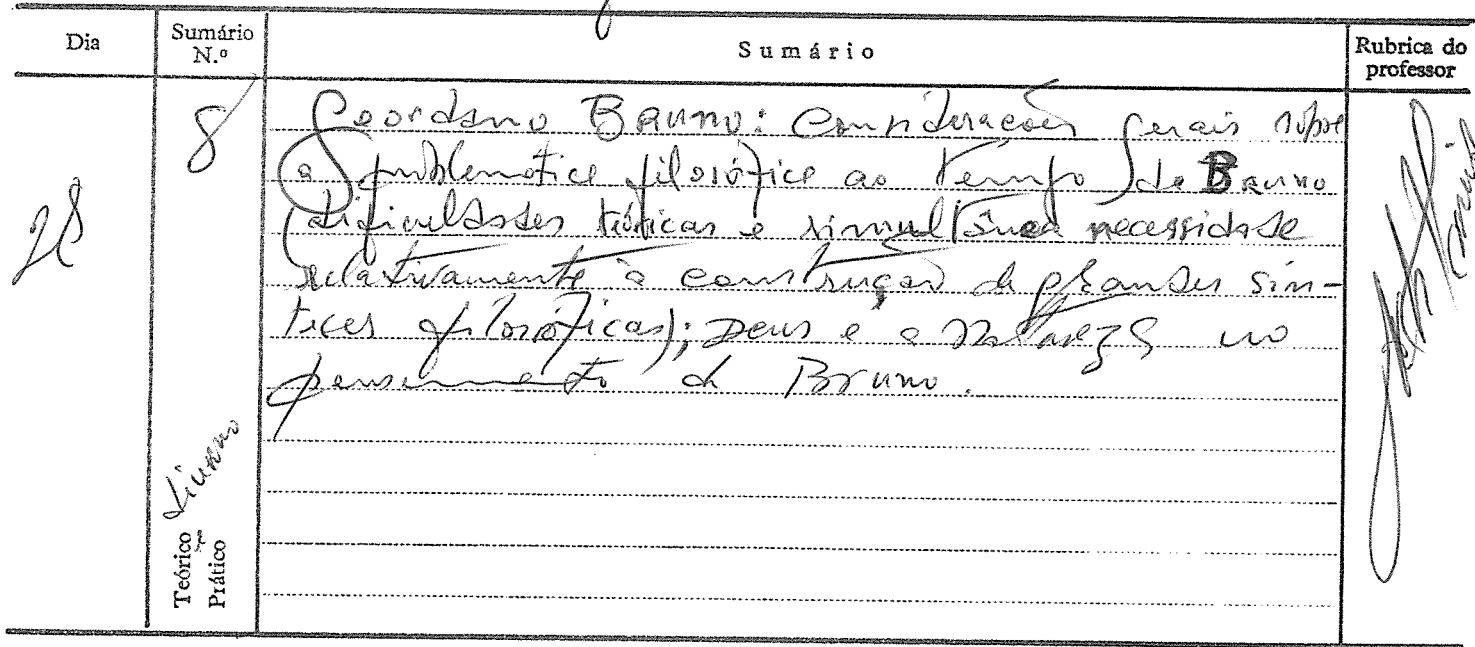 Dia
Sumário N.º
Sumário
Rubrica do professor
28
8
Geordano Bruno: Considerações gerais sobre
a problemática filosófica ao tempo de Bruno
(dificuldades teóricas e simultânea necessidade
relativamente à construção de grandes sín-
teses filosóficas); Deus e a Natureza no
pensamento de Bruno.
Teórico
Prático